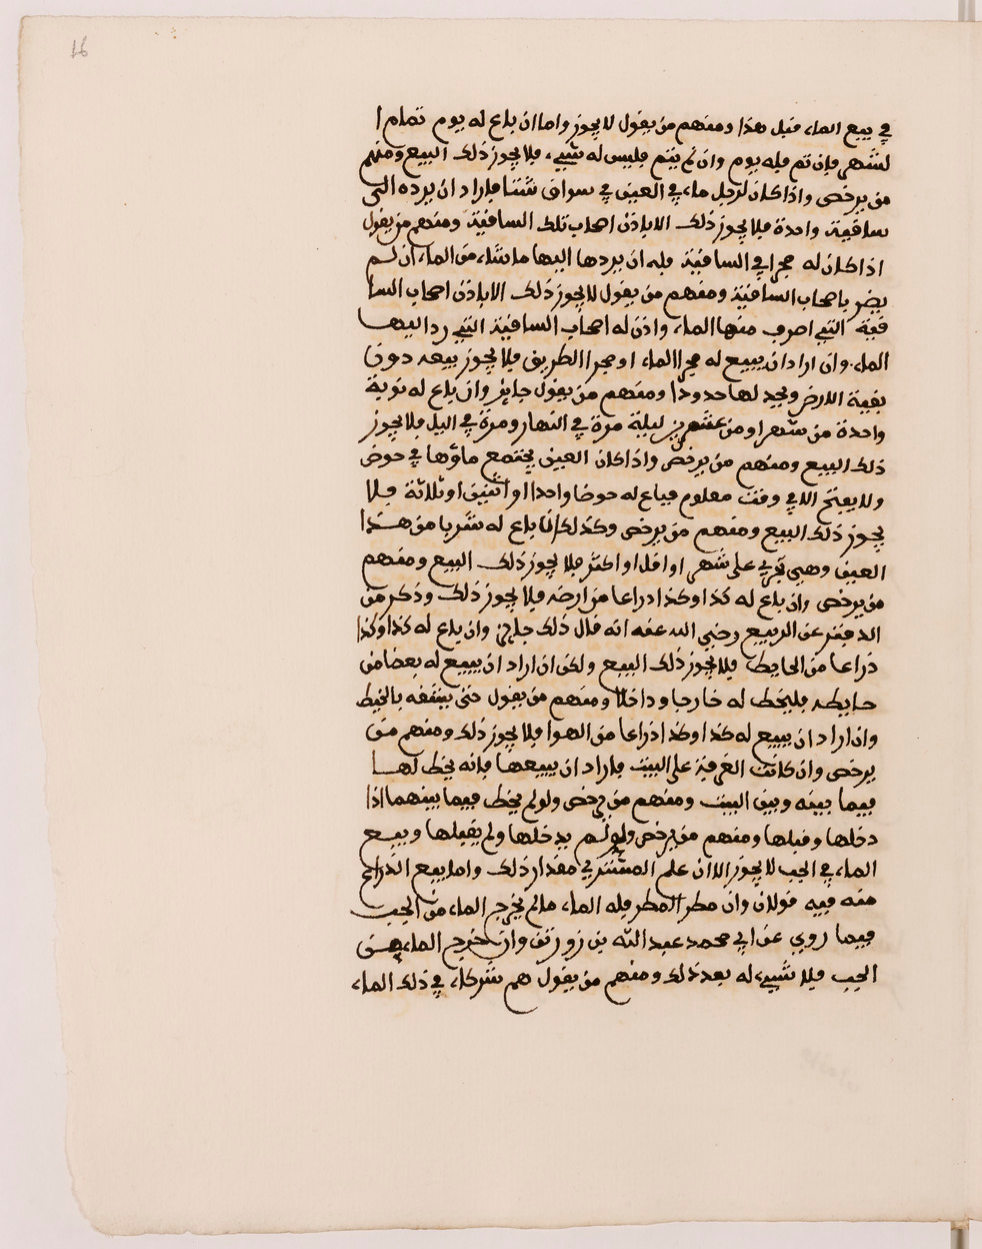 16
في بيع الماء قبل هذا ومنهم من يقول لا يجوز واما ان باع له يوم تمام ا
لشهر فإن تم فله يوم وان لم يتم فليس له شيء فلا يجوز ذلك البيع ومنهم
من يرخص واذا كان لرجل ماء في العين في سواق شتا فاراد ان يرده الى
ساقية واحدة فلا يجوز ذلك الا باذن اصحاب تلك الساقية ومنهم من يقول
اذا كان له مجرا في الساقية فله ان يردها اليها ما شاء من الماء ان لم
يضر باصحاب الساقية ومنهم من يقول لا يجوز ذلك الا باذن اصحاب السا
قية التي اصرف منها الماء واذن له اصحاب الساقية التي رد اليها
الماء وان اراد ان يبيع له مجرا الماء او مجرا الطريق فلا يجوز بيعه دون
بقية الارض ويحد لها حدودا ومنهم من يقول جايز وان باع له نوبة
واحدة من شهر او من عشرين ليلة مرة في النهار ومرة في اليل فلا يجوز
ذلك البيع ومنهم من يرخص واذا كان العين يجتمع ماؤها في حوض
ولا يفتح الا في وقت معلوم فباع له حوضا واحدا او اثنين او ثلاثة فلا
يجوز ذلك البيع ومنهم من يرخص وكذلك ان باع له شربا من هذا
العين وهي تجري على شهر او اقل او اكثر فلا يجوز ذلك البيع ومنهم
من يرخص وان باع له كذا وكذا ذراعا من ارضه فلا يجوز ذلك وذكر من
الدفتر عن الربيع رضي الله عنه انه قال ذلك جايز وان باع له كذا وكذا
ذراعا من الحايط فلا يجوز ذلك البيع ولكن ان اراد ان يبيع له بعضا من
حايطه فليخط له خارجا وداخلا ومنهم من يقول حتى ينقفه بالخيط
وان اراد ان يبيع له كذا وكذا ذراعا من الهوا فلا يجوز ذلك ومنهم من
يرخص وان كانت الغرفة على البيت فاراد ان يبيعها فإنه يخط لها
فيما بينه وبين البيت ومنهم من يرخص ولو لم يخط فيما بينهما اذا
دخلها وقبلها ومنهم من يرخص ولو لم يدخلها ولم يقبلها وبيع
الماء في الجب لا يجوز الا ان علم المشتري مقدار ذلك واما بيع الذراع
منه ففيه قولان وان مطر المطر فله الماء ما لم يخرج الماء من الجب
فيما روي عن ابي محمد عبد الله بن زورتن وان خرج الماء من
الجب فلا شيء له بعد ذلك ومنهم من يقول هم شركاء في ذلك الماء